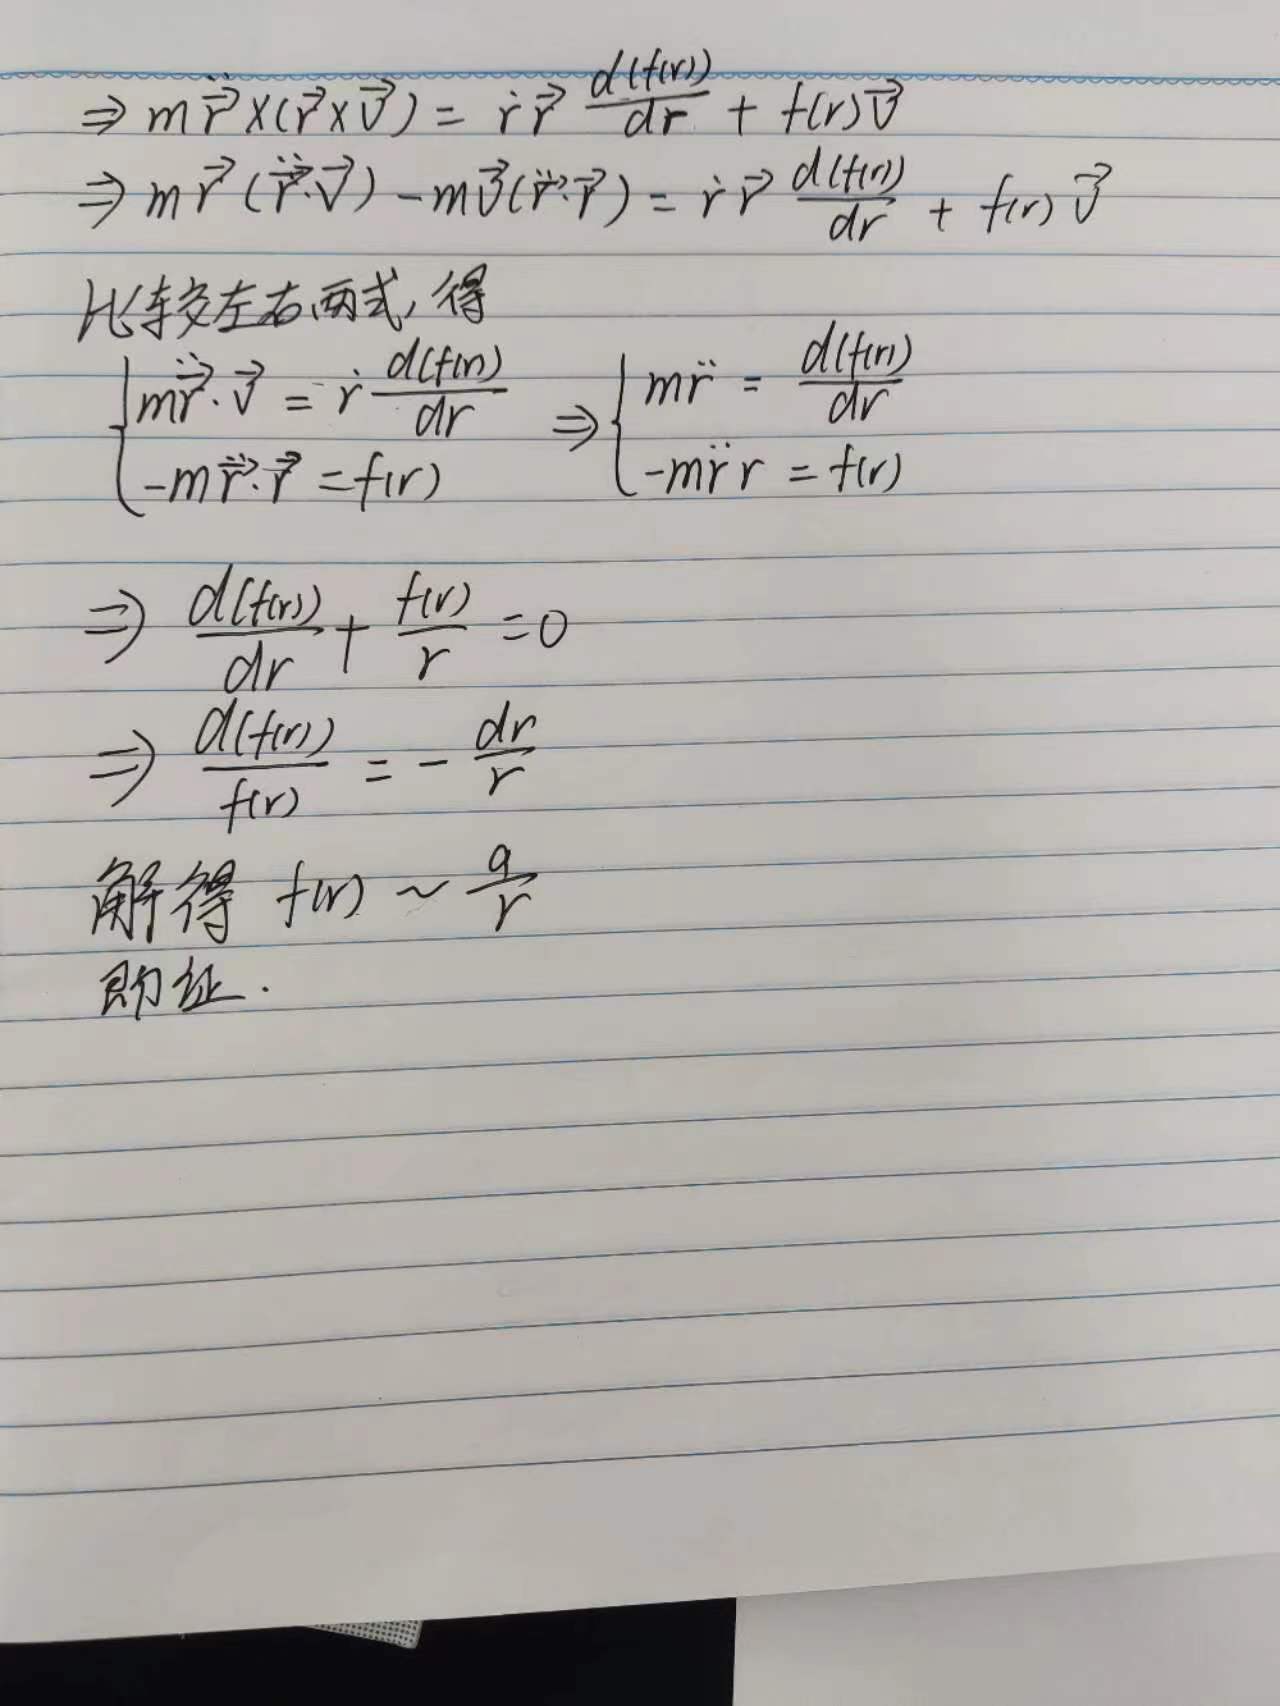 ⇒ m\ddot{\vec{r}}×(\vec{r}×\vec{v}) = \dot{r}\vec{r} \frac{d(f(r))}{dr} + f(r)\vec{v}
⇒ m\vec{r}(\ddot{\vec{r}}·\vec{v}) - m\vec{v}(\ddot{\vec{r}}·\vec{r}) = \dot{r}\vec{r} \frac{d(f(r))}{dr} + f(r)\vec{v}
比较左右两式,得
{ m\ddot{\vec{r}}·\vec{v} = \dot{r}\frac{d(f(r))}{dr} ⇒ { m\ddot{r} = \frac{d(f(r))}{dr}
-m\ddot{\vec{r}}·\vec{r} = f(r) -m\ddot{r}r = f(r)
⇒ \frac{d(f(r))}{dr} + \frac{f(r)}{r} = 0
⇒ \frac{d(f(r))}{f(r)} = - \frac{dr}{r}
解得 f(r) ~ \frac{a}{r}
即证.